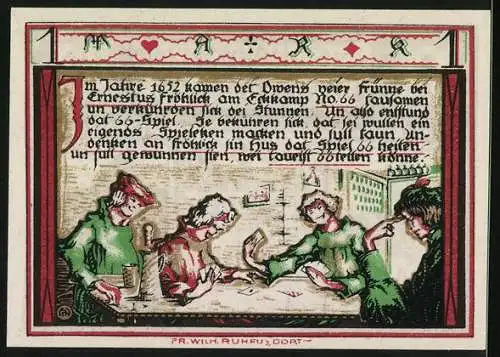 1 MARK 1
Im Jahre 1652 kamen der Owens veier frünne bei
Ernestus fröhlick am Eckkamp No. 66 tausamen
un verkürden sick dei Stunnen. Un also entstund
dat 66-Spiel. Se verküren sick, dat sei wullen ein
eigends Spieleken macken und sull taun An-
denken an fröhlick sin Hus dat Spiel 66 heiten
un sull gewunnen sien, wei taueist 66 tellen könne.
FR. WILH. RUHFUS, DORT